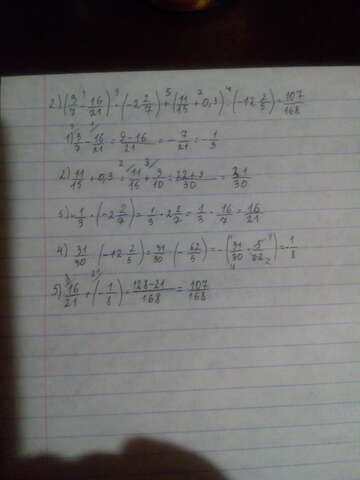 2) (3/7 - 16/21) · (-2 2/7) + (11/15 + 0,3) : (-12 2/5) = 107/168
1) 3/7 - 16/21 = 9-16/21 = -7/21 = -1/3
2) 11/15 + 0,3 = 11/15 + 3/10 = 22+9/30 = 31/30
3) -1/3 · (-2 2/7) = 1/3 · 2 2/7 = 1/3 · 16/7 = 16/21
4) 31/30 : (-12 2/5) = 31/30 : (-62/5) = -(31/30 · 5/62) = -1/8
5) 16/21 + (-1/8) = 128-21/168 = 107/168